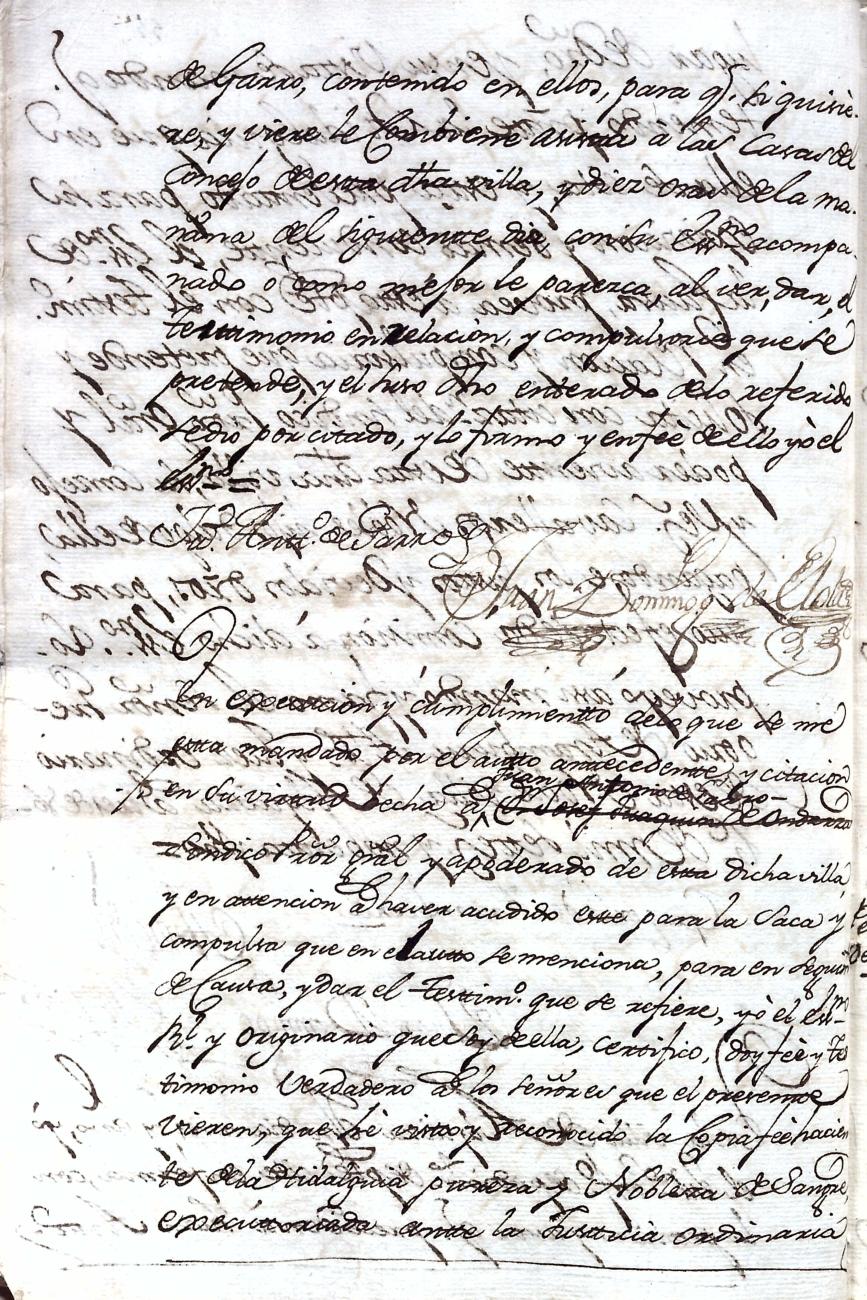 de Garro, contenido en ellos, para q.e si quisie-
re, y viere le Combiene asista a las Casas del
Concejo de esta dha villa, y diez oras de la ma-
ñana del siguiente dia, con su Essno acompa-
ñado o como mejor le parezca, al ver, dar, el
testimonio en relacion, y compulsorio que se
pretende, y el suso dho enterado de lo referido
se dio por citado, y lo firmo y en feè de ello yò el
Essno =
Ju.n Antt.o de Garro
Juan Domingo de
En execucion y cumplimientto de lo que se me
esta mandado por el autto antecedente, y citacion
Juan Antonio de Garro
en su virtud hecha à Dn Josef Joaquin de Ondarza
Sindico Pror gral y apoderado de esta dicha villa,
y en attencion à haver acudido este para la Saca y
compulsa que en el autto se menciona, para en seguim.to
de Causa, y dar el Testim.o que se refiere, yò el Essno
Rl. y Originario que soy de ella, Certifico, doy feè y tes
timonio Verdadero à los señores que el presente
vieren, que hè visto y reconocido la Copia feèhacien
te de la Hidalguia pureza y Nobleza de Sangre
executtoriada antte la Justicia ordinaria